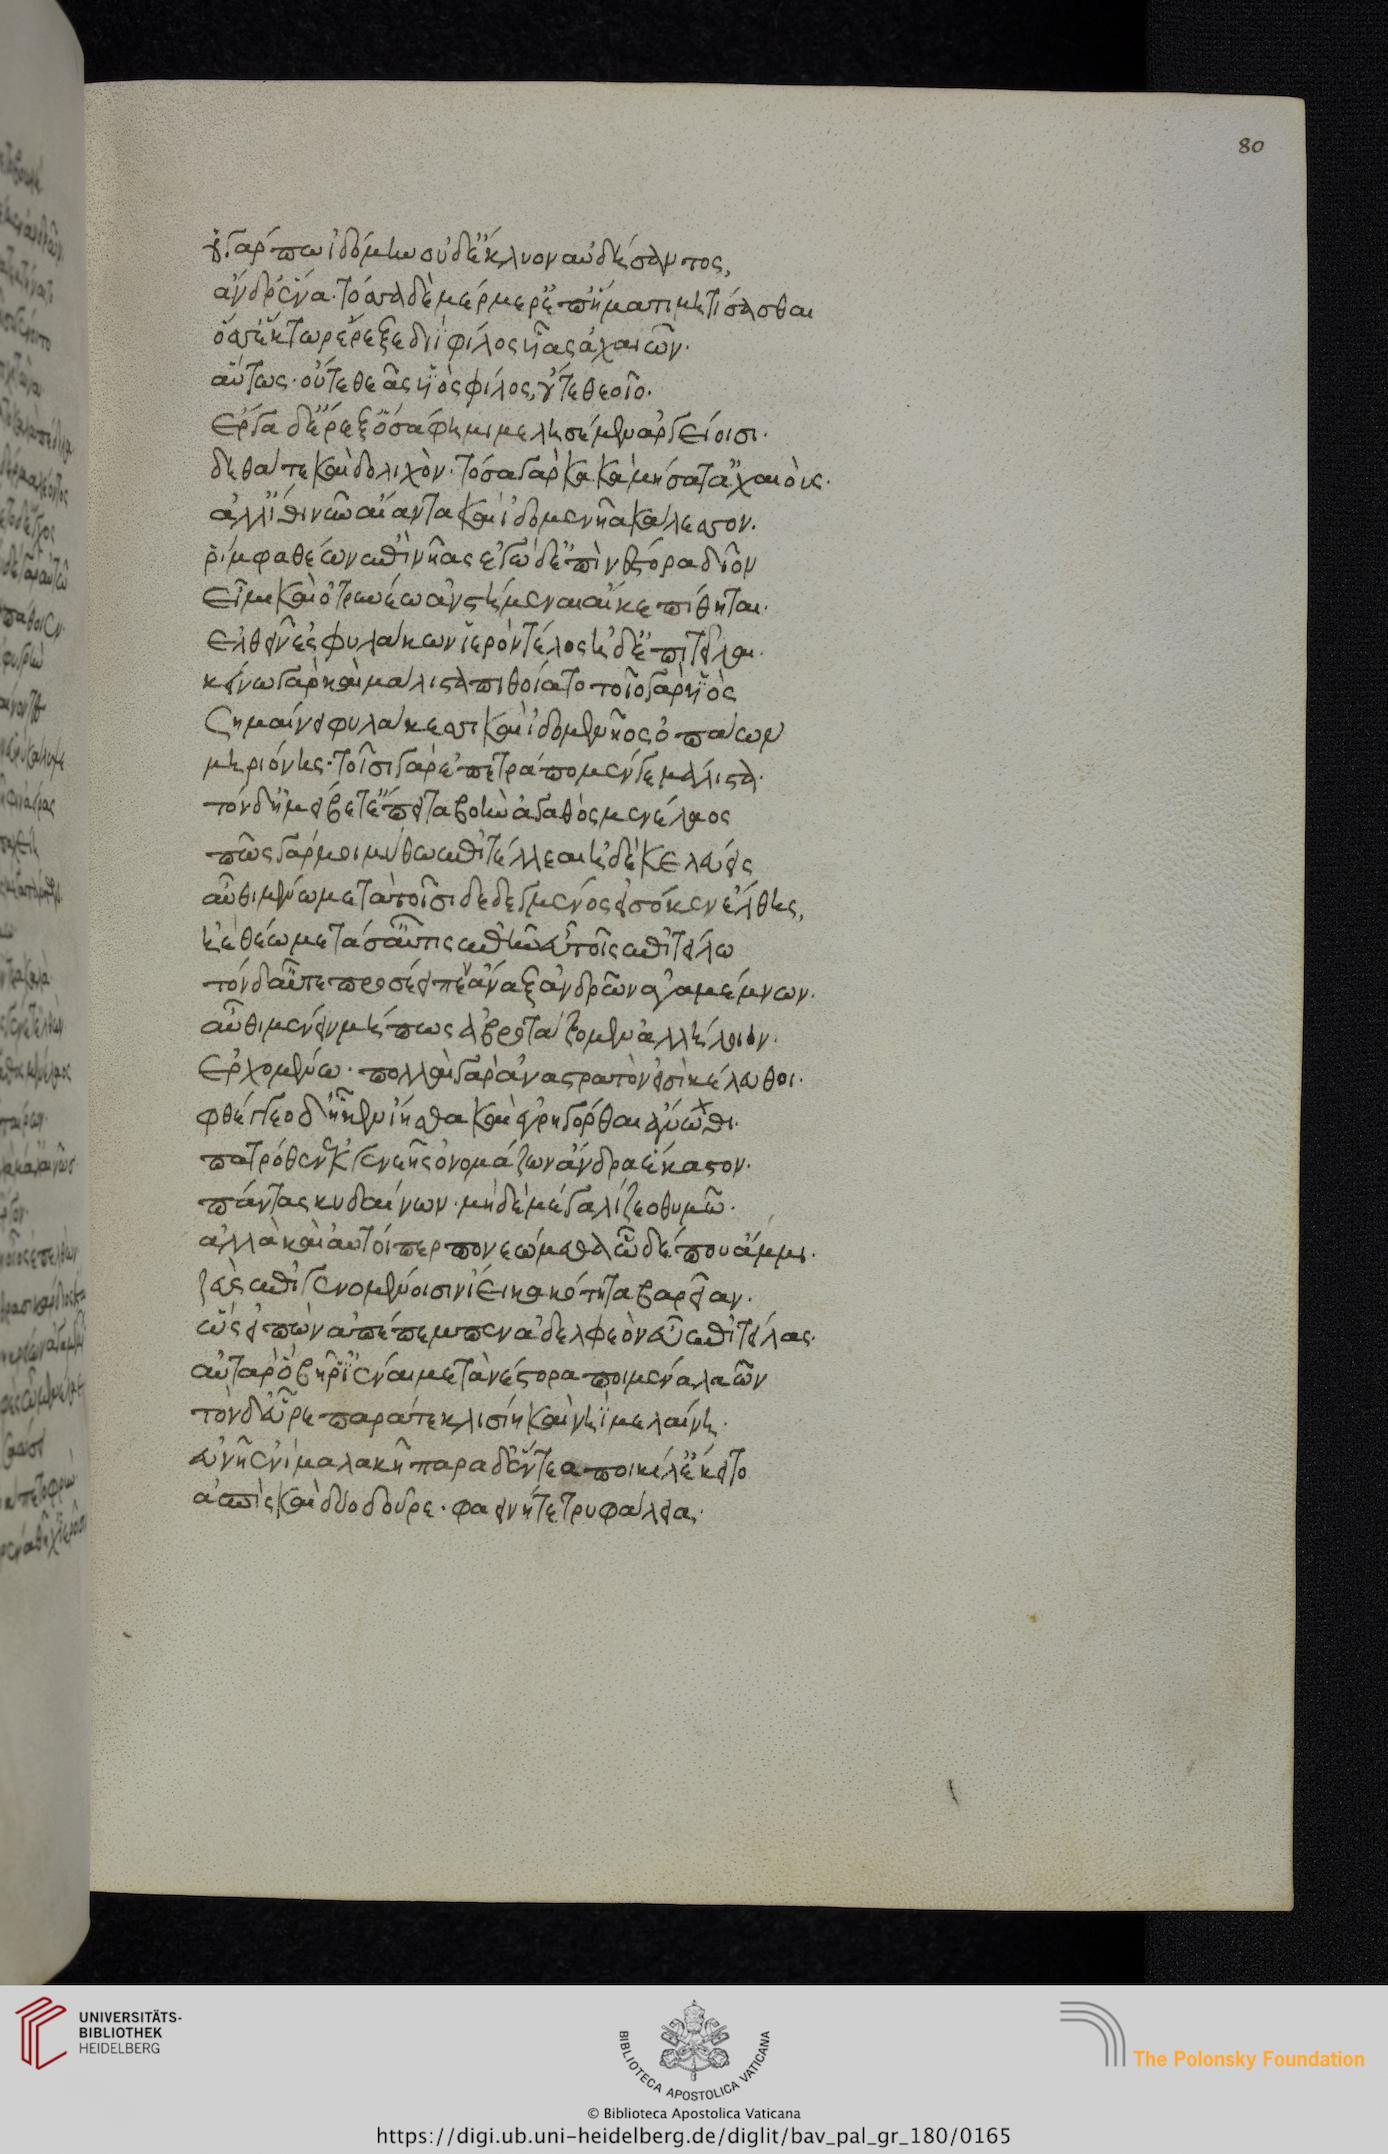 80
οὐ γάρ πω ἰδόμην οὐδ' ἔκλυον αὐδήσαντος,
ἄνδρ' ἕνα τοσσάδε μέρμερ' ἐπ' ἤματι μητίσασθαι
ὅσσ' ἕκτωρ ἔρεξε διῒ φίλος υἷας ἀχαιῶν.
αὔτως· οὔτε θεᾶς υἱὸς φίλος, οὔτε θεοῖο.
ἔργα δ' ἔρεξ' ὅσα φημὶ μελησέμεν ἀργείοισι.
δηθά τε καὶ δολιχὸν· τόσα γὰρ κακὰ μήσατ' ἀχαιοὺς.
ἀλλ' ἴθι νῦν αἴαντα καὶ ἰδομενῆα κάλεσσον.
ῥίμφα θέων ἐπὶ νῆας ἐγὼ δ' ἐπὶ νέστορα δῖον
εἶμι καὶ ὀτρυνέω ἀνστήμεναι αἴ κε πίθηται.
ἐλθεῖν ἐς φυλάκων ἱερὸν τέλος ἠδ' ἐπιτεῖλαι.
κείνω γὰρ καὶ μάλιστα πιθοίατο τοῖο γὰρ υἱὸς
σημαίνει φυλάκεσσι καὶ ἰδομενῆος ὀπάων
μηριόνης· τοῖσι γάρ ἐπετράπομέν γε μάλιστα.
τόνδ' ἠμείβετ' ἔπειτα βοὴν ἀγαθὸς μενέλαος
πῶς γάρ μοι μύθω ἐπιτέλλεαι ἠδὲ κελεύεις
αὖθι μένω μετὰ τοῖσι δεδεγμένος εἰσόκεν ἔλθης,
ἠὲ θέω μετά σ' αὖτις ἐπὴν εὖ τοῖς ἐπιτείλω
τόνδ' αὖτε προσέειπεν ἄναξ ἀνδρῶν ἀγαμέμνων.
αὖθι μένειν μή πως ἀβροτάξομεν ἀλλήλοιιν.
ἐρχομένω· πολλαὶ γὰρ ἀνὰ στρατόν εἰσι κέλευθοι.
φθέγγεο δ' ᾗ κεν ἴησθα καὶ ἐγρηγόρθαι ἄνωχθι.
πατρόθεν ἐκ γενεῆς ὀνομάζων ἄνδρα ἕκαστον.
πάντας κυδαίνων· μηδὲ μεγαλίζεο θυμῶ.
ἀλλὰ καὶ αὐτοί περ πονεώμεθα ὧδέ που ἄμμι.
ζεὺς ἐπὶ γενομένοισιν ἵει κακότητα βαρεῖαν.
ὣς εἰπὼν ἀπέπεμπεν ἀδελφεὸν εὖ ἐπιτείλας.
αὐτὰρ ὃ βῆ ῥ' ἰέναι μετὰ νέστορα ποιμένα λαῶν
τὸν δ' εὗρε παρά τε κλισίη καὶ νηῒ μελαίνη.
εὐνῆ ἐνὶ μαλακῆ παρὰ δ' ἔντεα ποικίλ' ἔκειτο
ἀσπὶς καὶ δύο δοῦρε· φαεινή τε τρυφάλεια.
UNIVERSITÄTS-
BIBLIOTHEK
HEIDELBERG
BIBLIOTECA APOSTOLICA VATICANA
The Polonsky Foundation
© Biblioteca Apostolica Vaticana
https://digi.ub.uni-heidelberg.de/diglit/bav_pal_gr_180/0165